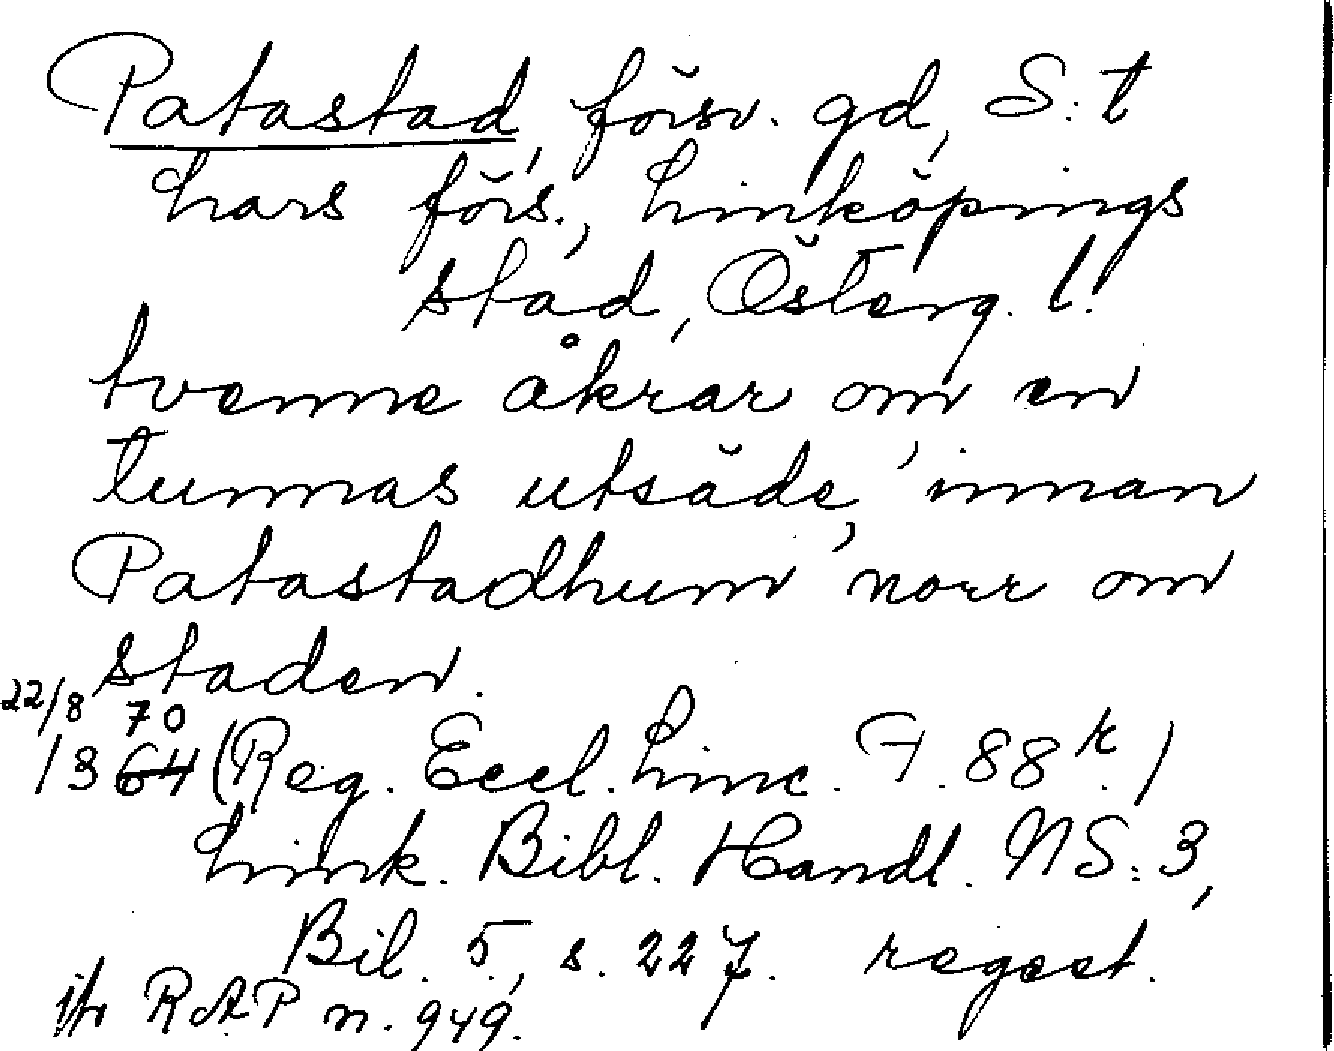 Patastad, försv. gd, S:t
Lars förs., Linköpings
stad, Österg. l.
tvenne åkrar om en
tunnas utsäde, 'innan
Patastadhum' norr om
staden.
22/8 70
1364 (Reg. Eccl. Linc. F. 88 r.)
Link. Bibl. Handl. NS. 3,
Bil. 5, s. 227. regest.
jfr RAP n. 949.